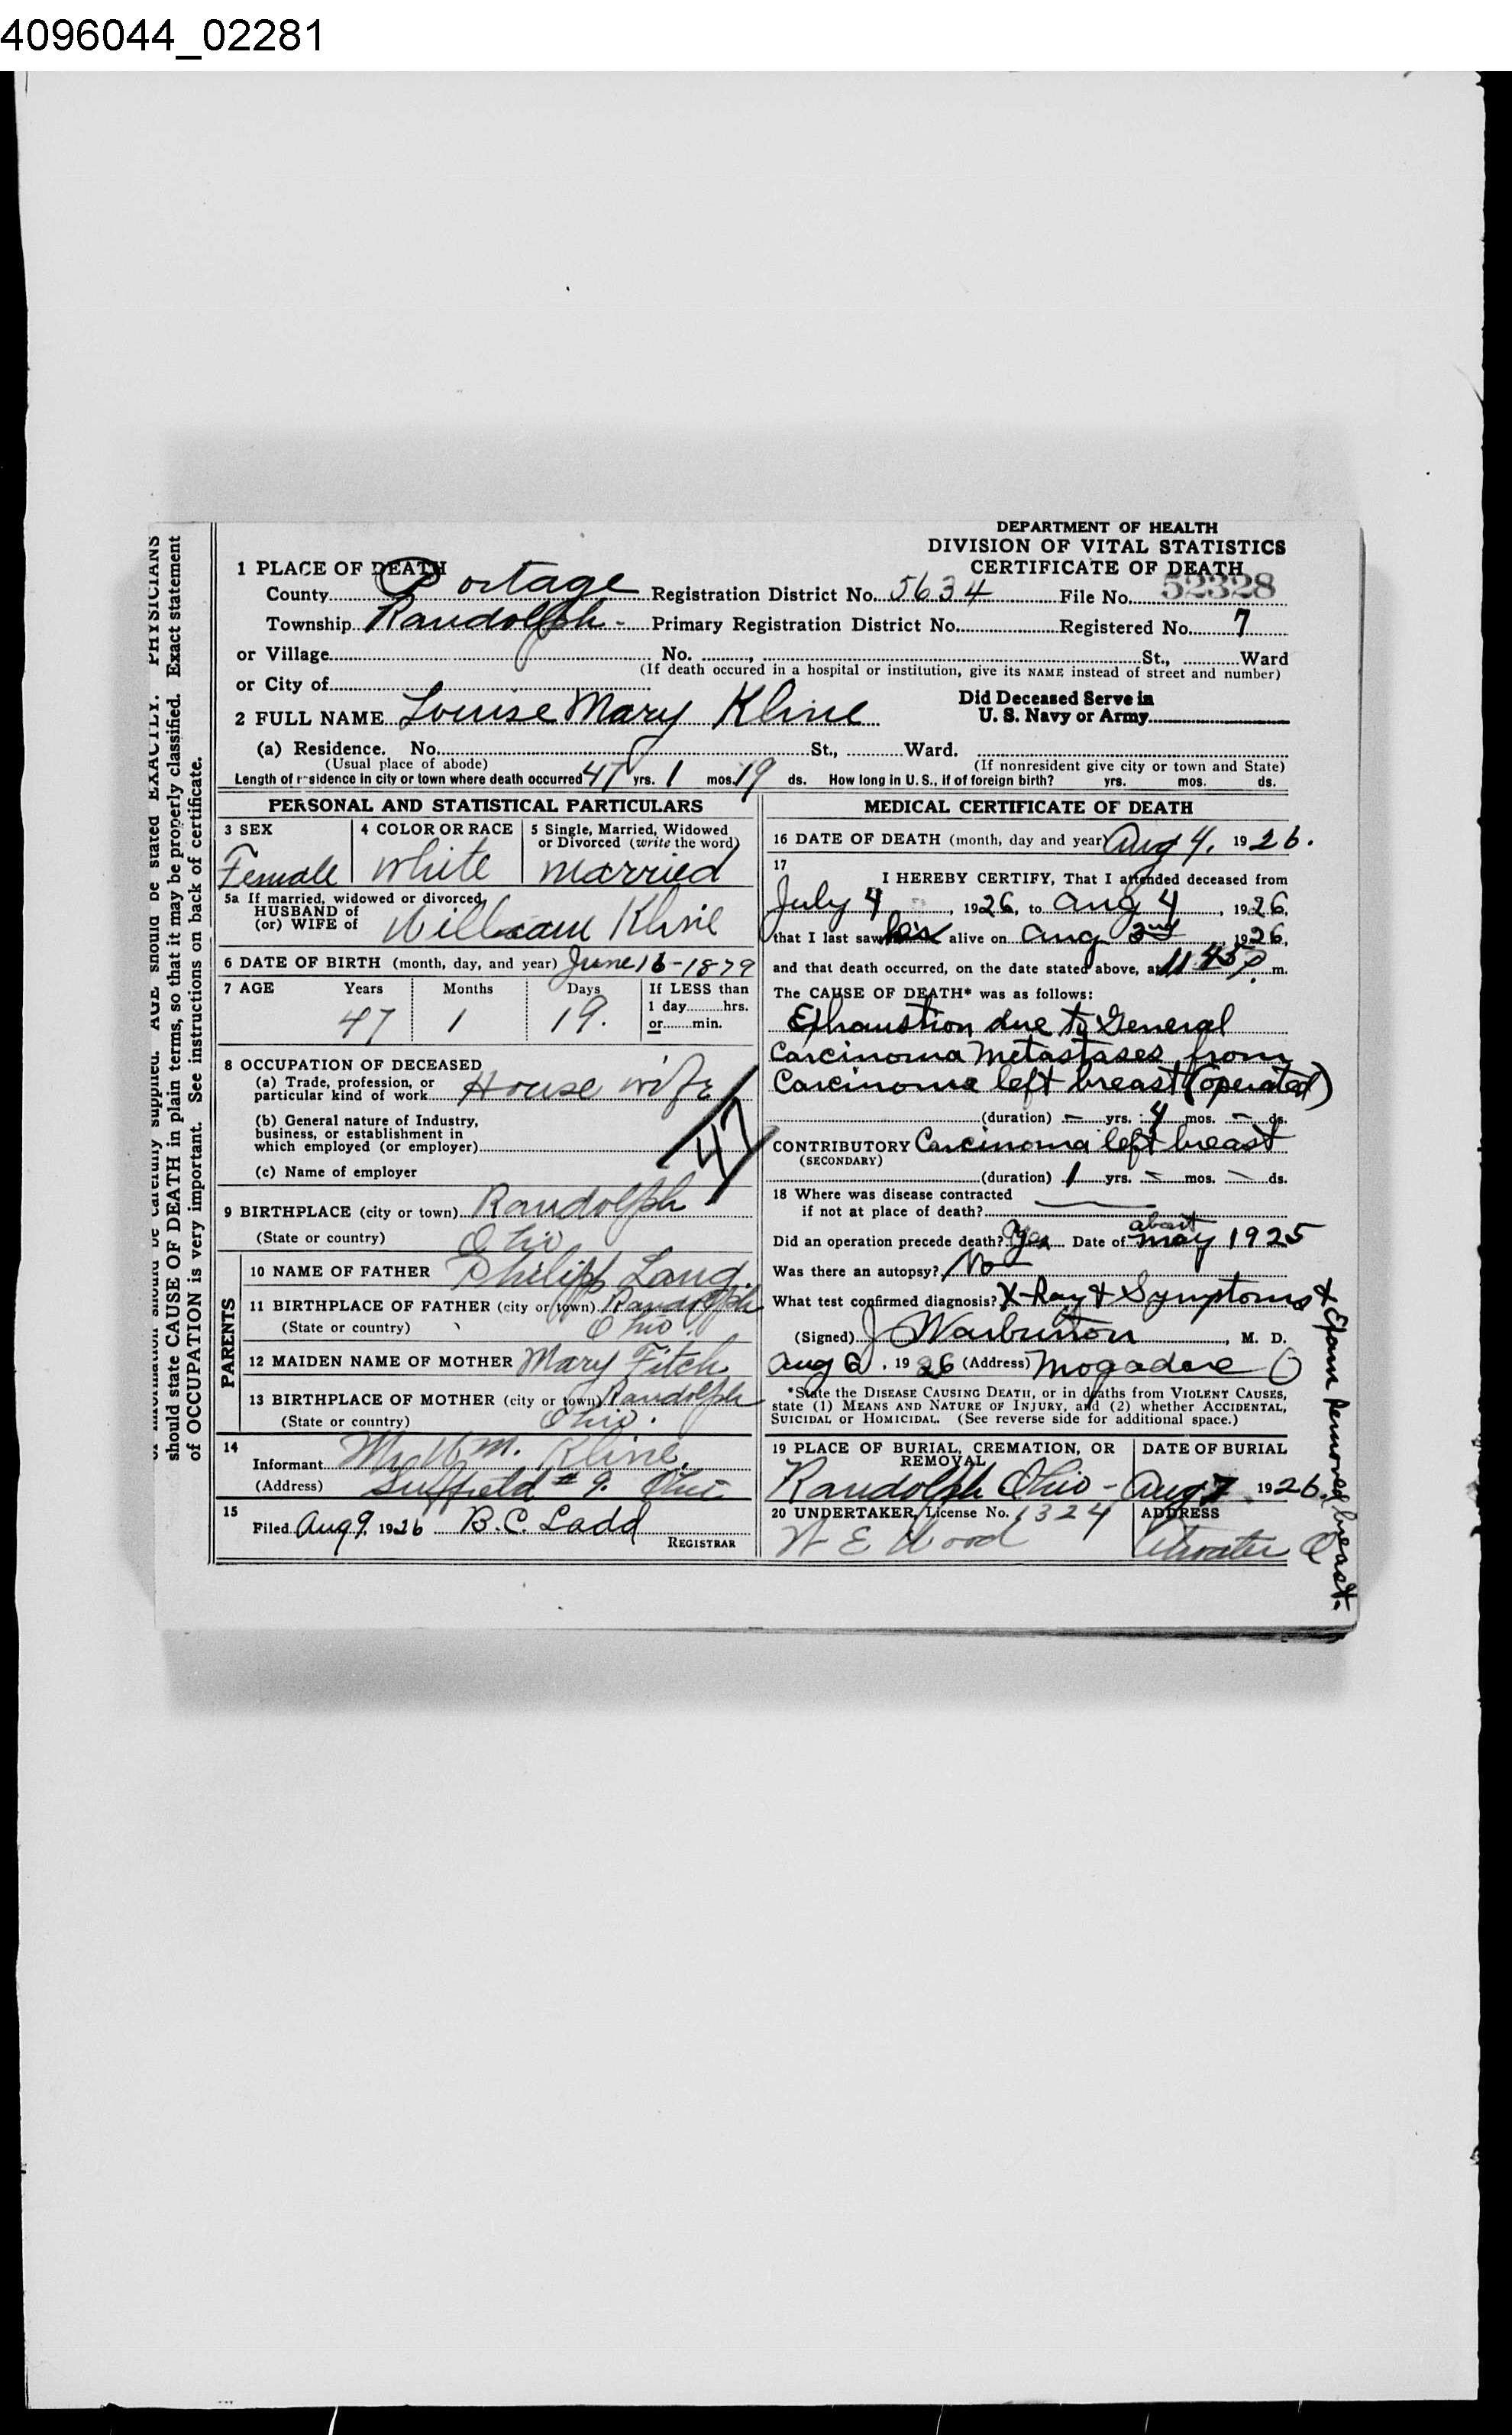 4096044_02281
DEPARTMENT OF HEALTH
DIVISION OF VITAL STATISTICS
CERTIFICATE OF DEATH
1 PLACE OF DEATH
County Portage Registration District No. 5634 File No. 52328
Township Randolph - Primary Registration District No. Registered No. 7
or Village No. , St., Ward
(If death occured in a hospital or institution, give its NAME instead of street and number)
or City of
2 FULL NAME Louise Mary Kline Did Deceased Serve in U. S. Navy or Army
(a) Residence. No. St., Ward.
(Usual place of abode) (If nonresident give city or town and State)
Length of residence in city or town where death occurred 47 yrs. 1 mos. 19 ds. How long in U. S., if of foreign birth? yrs. mos. ds.
PERSONAL AND STATISTICAL PARTICULARS
3 SEX Female
4 COLOR OR RACE White
5 Single, Married, Widowed or Divorced (write the word) married
5a If married, widowed or divorced
HUSBAND of
(or) WIFE of William Kline
6 DATE OF BIRTH (month, day, and year) June 16-1879
7 AGE Years Months Days If LESS than
1 day hrs.
or min.
47 1 19.
8 OCCUPATION OF DECEASED
(a) Trade, profession, or
particular kind of work House wife
(b) General nature of Industry,
business, or establishment in
which employed (or employer)
47
(c) Name of employer
9 BIRTHPLACE (city or town) Randolph
(State or country) Ohio
PARENTS
10 NAME OF FATHER Philipp Lang.
11 BIRTHPLACE OF FATHER (city or town) Randolph
(State or country) Ohio
12 MAIDEN NAME OF MOTHER Mary Fitch
13 BIRTHPLACE OF MOTHER (city or town) Randolph
(State or country) Ohio.
14
Informant Mr Wm. Kline.
(Address) Suffield # 9. Ohio
15
Filed Aug 9. 1926 B. C. Ladd
REGISTRAR
MEDICAL CERTIFICATE OF DEATH
16 DATE OF DEATH (month, day and year) Aug 4. 1926.
17
I HEREBY CERTIFY, That I attended deceased from
July 4, 1926, to Aug 4, 1926,
that I last saw her alive on Aug 2nd, 1926,
and that death occurred, on the date stated above, at 11.45 P. m.
The CAUSE OF DEATH* was as follows:
Exhaustion due to General
Carcinoma Metastases from
Carcinoma left breast (operated)
(duration) - yrs. 4 mos. - ds.
CONTRIBUTORY Carcinoma left breast
(SECONDARY)
(duration) 1 yrs. - mos. - ds.
18 Where was disease contracted
if not at place of death?
Did an operation precede death? Yes Date of about May 1925
Was there an autopsy? No
What test confirmed diagnosis? X-Ray & Symptoms & Exam removed breast.
(Signed) J Warburton, M. D.
Aug 6, 1926 (Address) Mogadore O
*State the DISEASE CAUSING DEATH, or in deaths from VIOLENT CAUSES,
state (1) MEANS AND NATURE OF INJURY, and (2) whether ACCIDENTAL,
SUICIDAL or HOMICIDAL. (See reverse side for additional space.)
19 PLACE OF BURIAL, CREMATION, OR REMOVAL DATE OF BURIAL
Randolph Ohio - Aug 7 1926.
20 UNDERTAKER, License No. 1324 ADDRESS
W E Wood Atwater O
should be carefully supplied. AGE should be stated EXACTLY. PHYSICIANS
should state CAUSE OF DEATH in plain terms, so that it may be properly classified. Exact statement
of OCCUPATION is very important. See instructions on back of certificate.